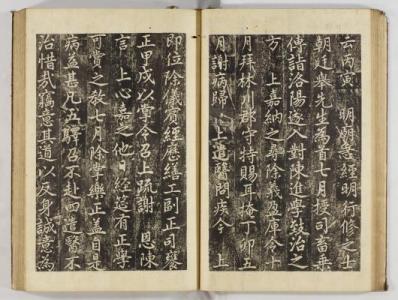 云丙寅 明朝急經明行修之士
朝廷舉先生為首七月授司畜乗
傳詣洛陽遂入對陳進學致治之
方 上嘉納之尋除義盈庫令十
月拜林川郡守特賜耳掩丁卯五
月謝病歸 上遣醫問疾今 上
即位除儀賓經歷繕工副正司䆃
正甲戌以掌令召上疏謝 恩陳
言 上心嘉之他日經筵有正學
可賞之教七月除掌樂正盖自是
病益甚凡五驛召不赴四遣醫不
治惜哉竊意其道以反身誠意為